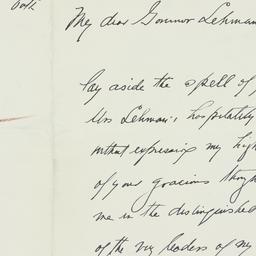 My dear Governor Lehman
lay aside the spell of
Mrs Lehman's hospitality
without expressing my high
of your gracious though
me in the distinguished
of the leaders of my